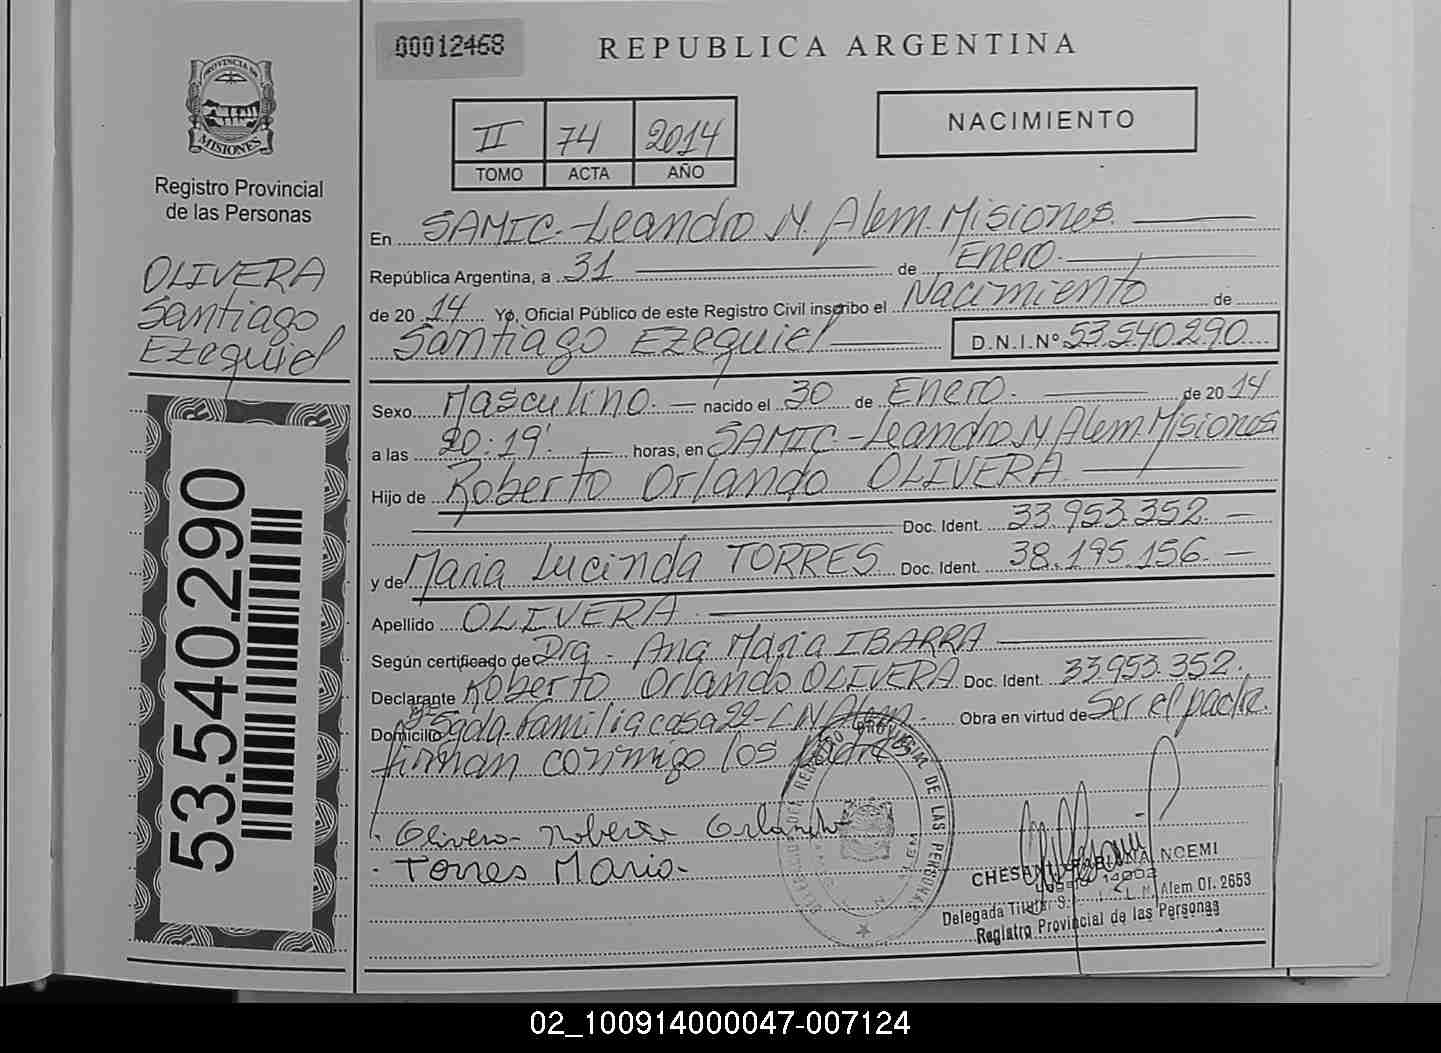 00012468
REPUBLICA ARGENTINA
PROVINCIA DE
MISIONES
Registro Provincial
de las Personas
II 74 2014
TOMO ACTA AÑO
NACIMIENTO
OLIVERA
Santiago
Ezequiel
53.540.290
En SAMIC - Leandro N. Alem - Misiones.
República Argentina, a 31 de Enero.
de 20 14 Yo, Oficial Público de este Registro Civil inscribo el Nacimiento de
Santiago Ezequiel D.N.I.Nº 53.540.290
Sexo Masculino. nacido el 30 de Enero. de 20 14
a las 20:19' horas, en SAMIC - Leandro N Alem Misiones
Hijo de Roberto Orlando OLIVERA
Doc. Ident. 33.953.352.
y de Maria Lucinda TORRES Doc. Ident. 38.195.156.
Apellido OLIVERA
Según certificado de Dra. Ana Maria IBARRA
Declarante Roberto Orlando OLIVERA Doc. Ident. 33.953.352.
Domicilio Sgda. Familia casa 22 - L N Alem. Obra en virtud de Ser el padre.
firman conmigo los padres
Olivera Roberto Orlando
Torres Maria
REGISTRO PROVINCIAL DE LAS PERSONAS
CHESANI FABIANA NOEMI
Legajo 14002
Delegada Titular L.N. Alem Of. 2653
Registro Provincial de las Personas
02_100914000047-007124